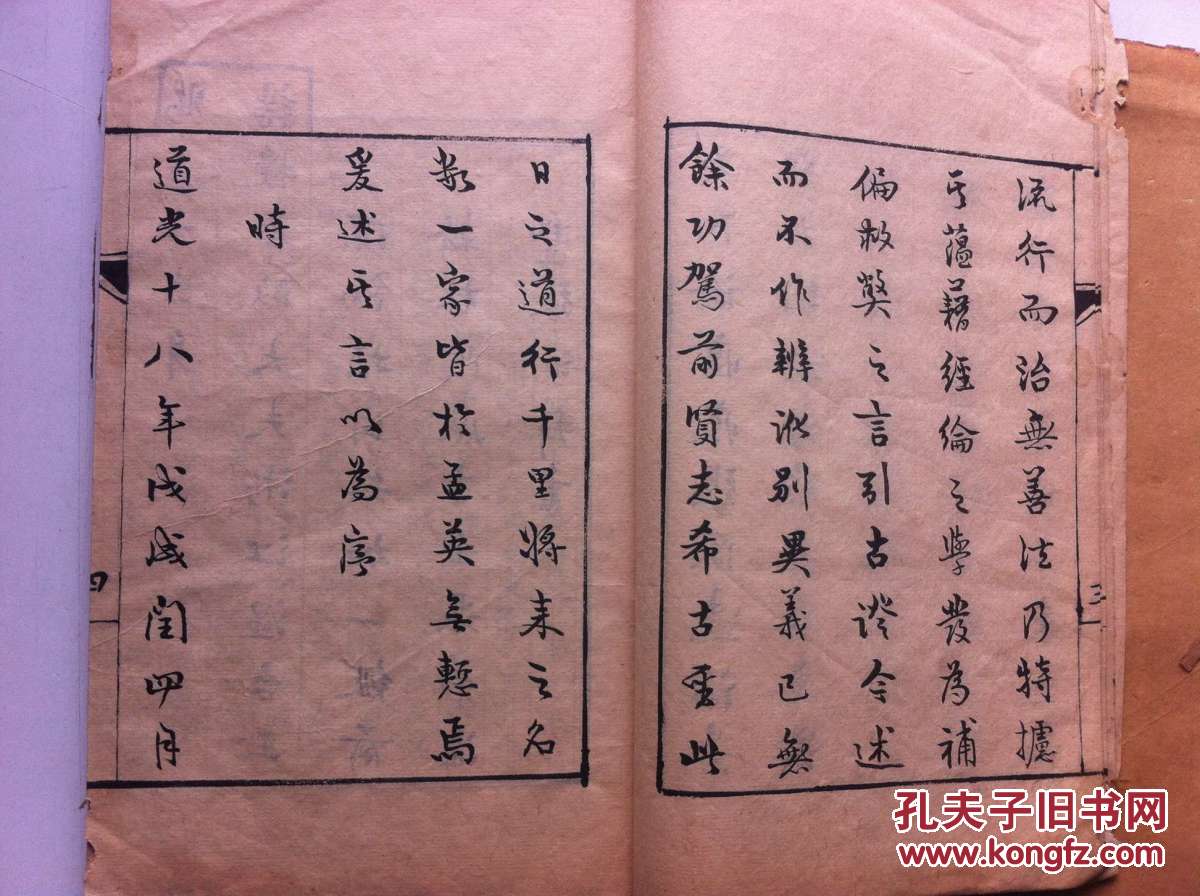 流行而治無善法乃特攄
其蕴藉經綸之學發為補
偏救獘之言引古證今述
而不作辨訛別異義已無
餘功駕前賢志希古聖此
三
日之道行千里將来之名
數一家皆於孟英無慙焉
爰述其言以為序
時
道光十八年戊戌閏四月
四
孔夫子旧书网
www.kongfz.com